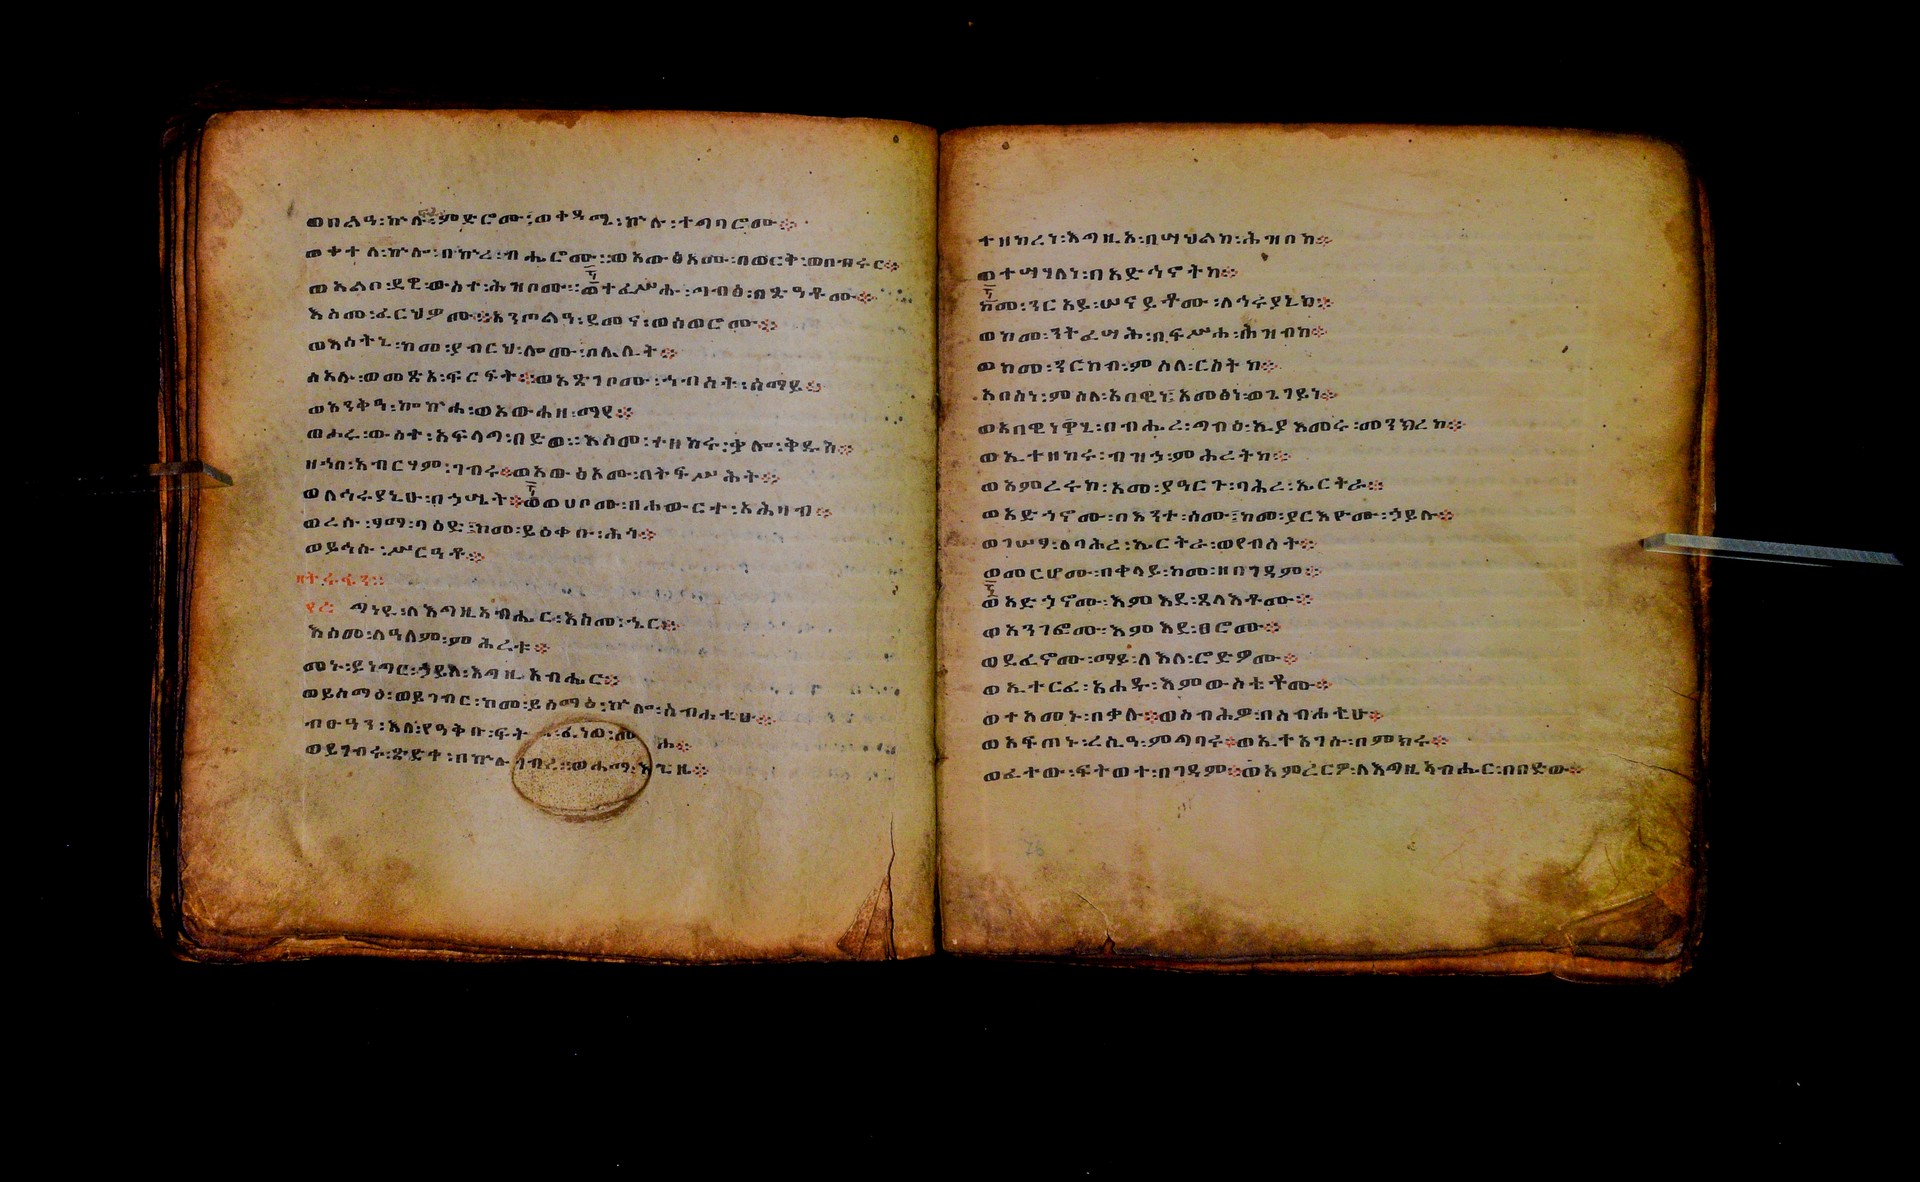 ወበልዓ፡ኵሉ፡ምድሮሙ፡ወቀዳሚ፡ኵሉ፡ተግባሮሙ፨
ወቀተለ፡ኵሎ፡በኵረ፡ብሔሮሙ፡፡ወአውፅአሙ፡በወርቅ፡ወበብሩር፨
ወአልቦ፡ደዌ፡ውስተ፡ሕዝቦሙ፡፡ወተፈሥሐ፡ግብፅ፡በፀዓቶሙ፨
እስመ፡ፈርህዎሙ፨አንጦልዓ፡ደመና፡ወሰወሮሙ፨
ወእሳትኒ፡ከመ፡ያብርህ፡ሎሙ፡በሌሊት፨
ሰአሉ፡ወመጽአ፡ፍርፍርት፨ወአጽገቦሙ፡ኅብስት፡ሰማይ፨
ወአንቅዓ፡ኰኵሐ፡ወአውሐዘ፡ማየ፨
ወሖሩ፡ውስተ፡አፍላግ፡በድወ፡፡እስመ፡ተዘከረ፡ቃሎ፡ቅዱሰ፨
ዘኀበ፡አብርሃም፡ገብሩ፨ወአውፅኦሙ፡በትፍሥሕት፨
ወለኅሩያኒሁ፡በኃሤት፨ወወሀቦሙ፡በሐውርተ፡አሕዛብ፨
ወረሱ፡ፃማ፡ባዕድ፡ከመ፡ይዕቀቡ፡ሕጎ፨
ወይኅሱ፡ሥርዓቶ፨
ግነዩ፡ለእግዚአብሔር፡እስመ፡ኄር፨
እስመ፡ለዓለም፡ምሕረቱ፨
መኑ፡ይነግር፡ኃይለ፡እግዚአብሔር፨
ወይሰማዕ፡ወይገብር፡ከመ፡ይሰማዕ፡ኵሎ፡ስብሐቲሁ፨
ብፁዓን፡እለ፡የዓቅቡ፡ፍትሐ፨
ወይገብሩ፡ጽድቀ፡በኵሉ፡ጊዜ፨
ተዘከረነ፡እግዚኦ፡በሣህልከ፡ሕዝበከ፨
ወተሣሃለነ፡በአድኅኖትከ፨
ከመ፡ንርአይ፡ሠናይቶሙ፡ለኅሩያኒከ፨
ወከመ፡ንትፈሣሕ፡በፍሥሐ፡ሕዝብከ፨
ወከመ፡ንርከብ፡ምስለ፡ርስትከ፨
አበስነ፡ምስለ፡አበዊነ፡አመፅነ፡ወጌገይነ፨
ወአበዊነኒ፡በብሔረ፡ግብፅ፡ኢያእመሩ፡መንክረከ፨
ወኢተዘከሩ፡ብዝኃ፡ምሕረትከ፨
ወአምረሩከ፡አመ፡ያዓርጉ፡ባሕረ፡ኤርትራ፨
ወአድኀኖሙ፡በእንተ፡ስሙ፡ከመ፡ያርእዮሙ፡ኃይሉ፨
ወገሠፃ፡ለባሕረ፡ኤርትራ፡ወየብሰት፨
ወመርሆሙ፡በቀላይ፡ከመ፡ዘበገዳም፨
ወአድኀኖሙ፡እምእደ፡ጸላእቶሙ፨
ወአንገፎሙ፡እምእደ፡ፀሮሙ፨
ወደፈኖሙ፡ማይ፡ለእለ፡ሮድዎሙ፨
ወኢተርፈ፡አሐዱ፡እምውስቴቶሙ፨
ወተአመኑ፡በቃሉ፨ወሰብሕዎ፡በስብሐቲሁ፨
ወአፍጠኑ፡ረሲዓ፡ምግባሩ፨ወኢተአገሱ፡በምክሩ፨
ወፈተው፡ፍትወተ፡በገዳም፨ወአምረርዎ፡ለእግዚአብሔር፡በበድው፨